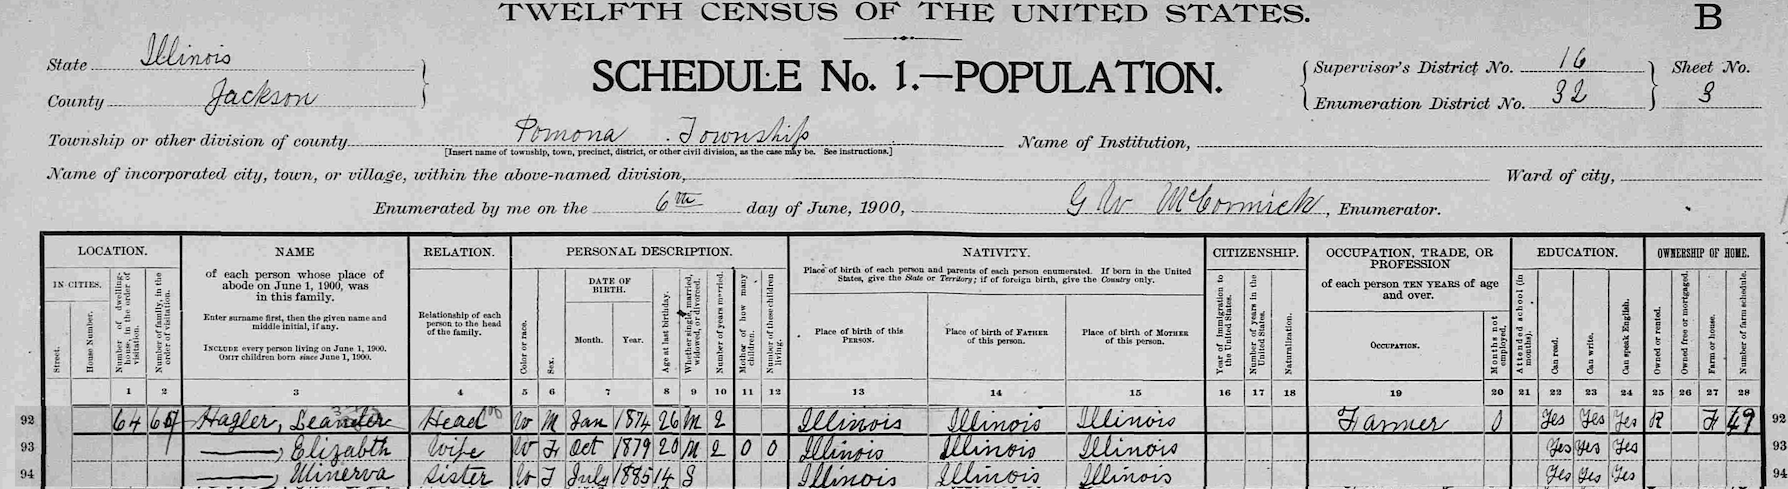 TWELFTH CENSUS OF THE UNITED STATES.
B
State Illinois
County Jackson
SCHEDULE No. 1.—POPULATION.
Supervisor's District No. 16
Enumeration District No. 32
Sheet No.
3
Township or other division of county Pomona Township
[Insert name of township, town, precinct, district, or other civil division, as the case may be. See instructions.]
Name of Institution,
Name of incorporated city, town, or village, within the above-named division,
Ward of city,
Enumerated by me on the 6th day of June, 1900, G W McCormick, Enumerator.
LOCATION.
IN CITIES.
Street.
House Number.
Number of dwelling-house, in the order of visitation.
Number of family, in the order of visitation.
NAME
of each person whose place of abode on June 1, 1900, was in this family.
Enter surname first, then the given name and middle initial, if any.
INCLUDE every person living on June 1, 1900.
OMIT children born since June 1, 1900.
RELATION.
Relationship of each person to the head of the family.
PERSONAL DESCRIPTION.
Color or race.
Sex.
DATE OF BIRTH.
Month.
Year.
Age at last birthday.
Whether single, married, widowed, or divorced.
Number of years married.
Mother of how many children.
Number of these children living.
NATIVITY.
Place of birth of each person and parents of each person enumerated. If born in the United States, give the State or Territory; if of foreign birth, give the Country only.
Place of birth of this PERSON.
Place of birth of FATHER of this person.
Place of birth of MOTHER of this person.
CITIZENSHIP.
Year of immigration to the United States.
Number of years in the United States.
Naturalization.
OCCUPATION, TRADE, OR PROFESSION
of each person TEN YEARS of age and over.
OCCUPATION.
Months not employed.
EDUCATION.
Attended school (in months).
Can read.
Can write.
Can speak English.
OWNERSHIP OF HOME.
Owned or rented.
Owned free or mortgaged.
Farm or house.
Number of farm schedule.
1 2 3 4 5 6 7 8 9 10 11 12 13 14 15 16 17 18 19 20 21 22 23 24 25 26 27 28
92 64 Hagler, Leander Head W M Jan 1874 26 M 2 Illinois Illinois Illinois Farmer 0 Yes Yes Yes R F 49 92
93 ——, Elizabth Wife W F Oct 1879 20 M 2 0 0 Illinois Illinois Illinois Yes Yes Yes 93
94 ——, Minerva Sister W F July 1885 14 S Illinois Illinois Illinois Yes Yes Yes 94